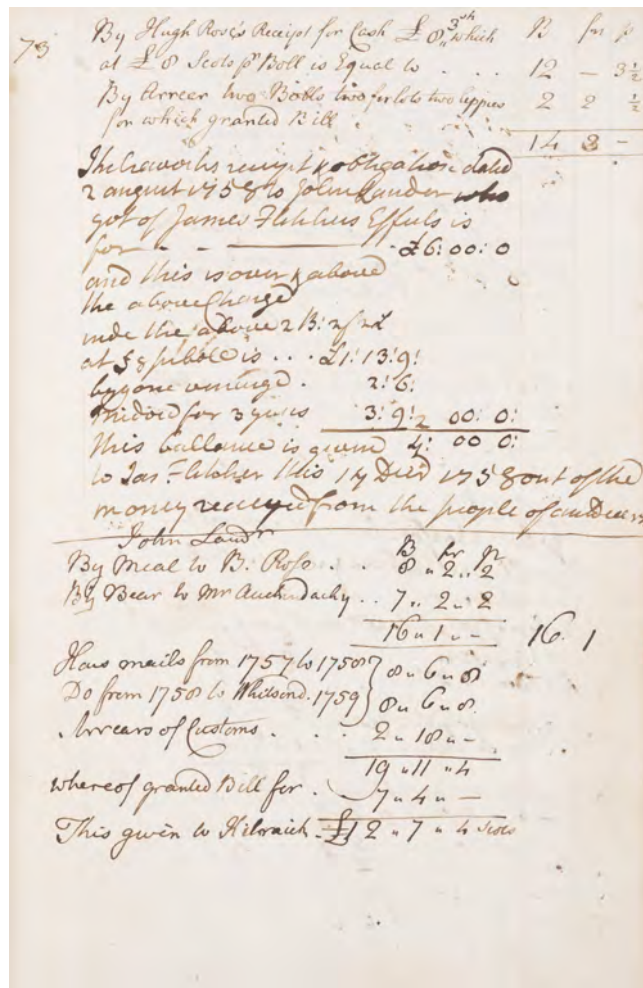 73
By Hugh Rose's Receipt for Cash £ 8,, 3sh which B fir p
at £ 8 Scots pr Boll is Equal to . . . 12 — 3½
By Arreer two Bolls two firlots two leppies 2 2 ½
for which granted Bill 14 3 –
receipt & obligation dated
2 august 1758 to John Lauder who
got of James Fletchers Effects is
for - - £6: 00: 0
and this is over & above
the above Charge
the above 2 B: 2 f 2 L
at is . . . £1: 13: 9:
bygone . 2: 6:
for 3 years 3: 9: 2 00: 0:
this ballance is given 4: 00 0:
to Jas Fletcher this 14 Decr 1758 out of the
money receiv'd from the people of
John Laudr
B fir p
By Meal to B. Rose . . 8 ,, 2 ,, 2
By Bear to Mr Auchindachy . . 7 ,, 2 ,, 2
16 ,, 1 ,, – 16. 1
Hous mails from 1757 to 1758 8 ,, 6 ,, 8
Do from 1758 to Whitsond. 1759 8 ,, 6 ,, 8
Arrears of Customs . . . 2 ,, 18 ,, –
19 ,, 11 ,, 4
whereof granted Bill for . 7 ,, 4 ,, —
This given to Kilraick £12 ,, 7 ,, 4 Scots